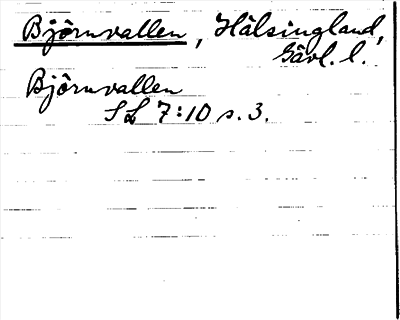 Björnvallen, Hälsingland,
Gävl. l.
Björnvallen
SL 7:10 s. 3.